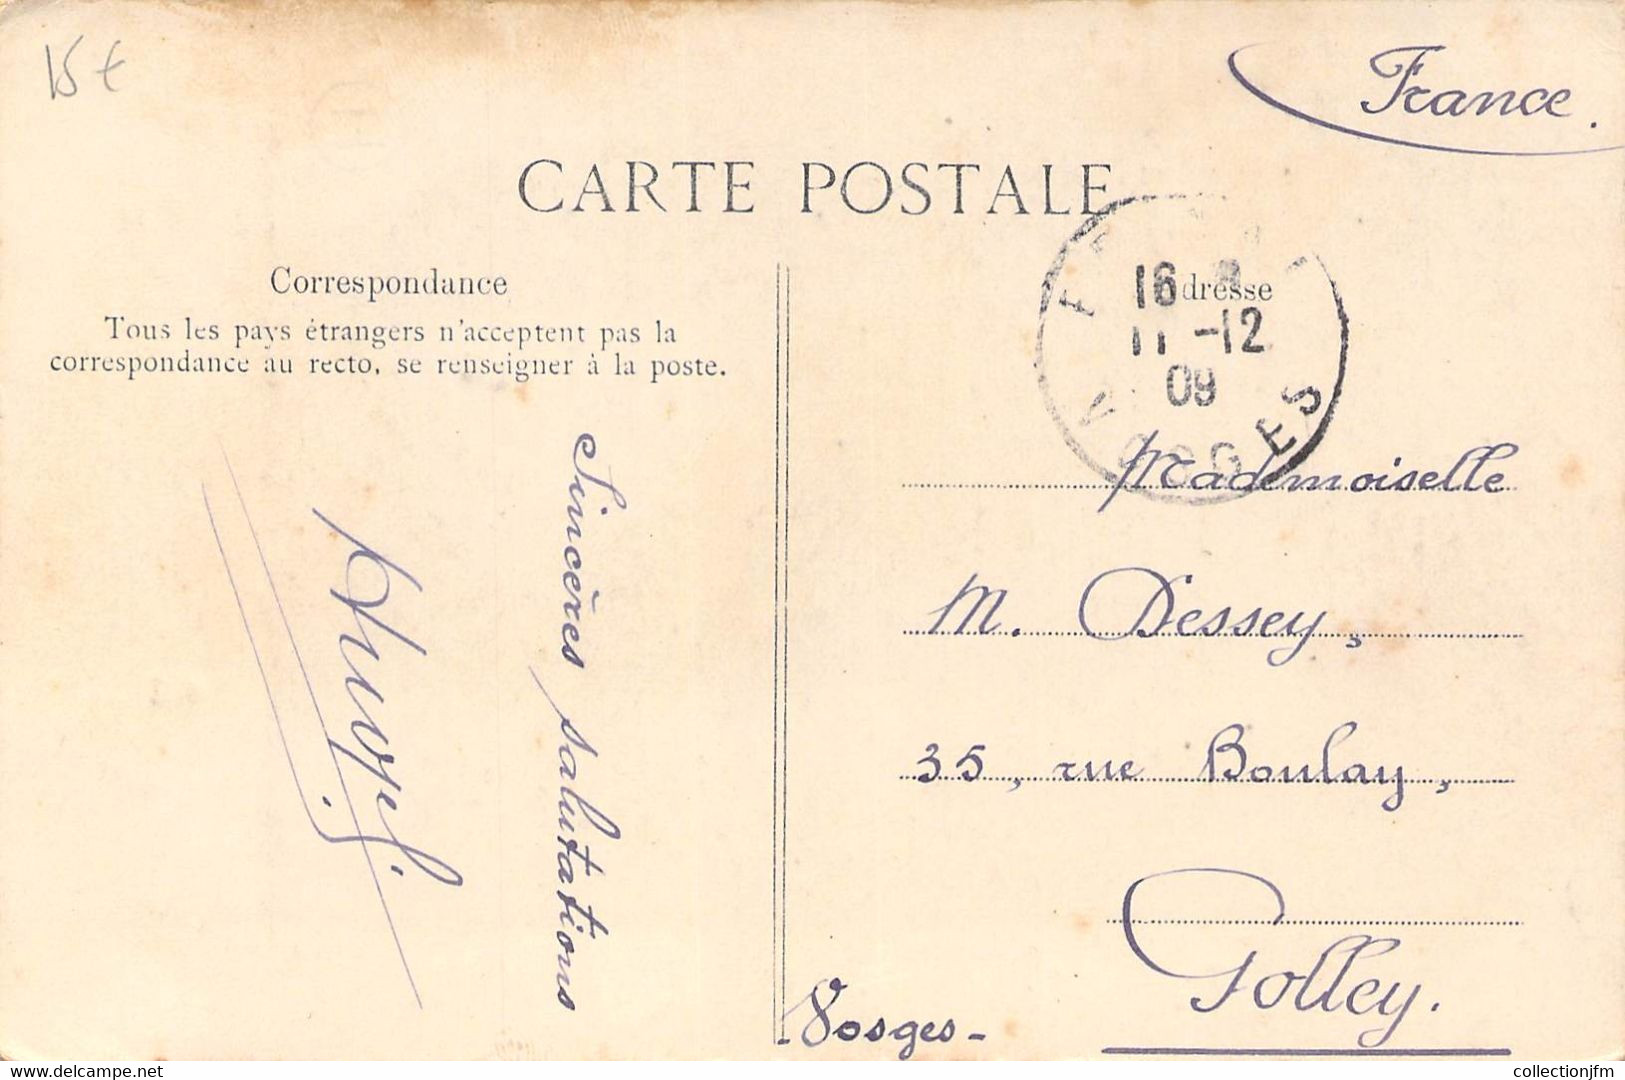 15 €
France.
CARTE POSTALE
Correspondance
Tous les pays étrangers n'acceptent pas la
correspondance au recto, se renseigner à la poste.
Adresse
16
11 -12
09
VOSGES
Sincères salutations
Mademoiselle
M. Dessey,
35, rue Boulay,
Golley.
- Vosges -
collectionjfm